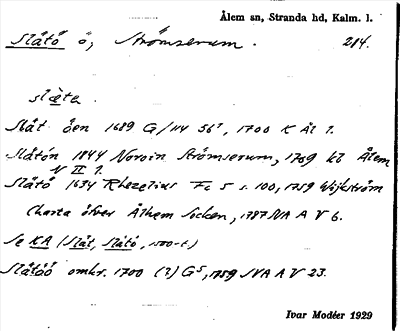 Ålem sn, Stranda hd, Kalm. l.
Slätö ö, Strömserum. 284.
slæta.
Slät öen 1689 G/44 56¹, 1700 K Ål 1.
Slätön 1844 Noroin Strömserum, 1789 kl Ålem
N II 1.
Slätö 1634 Rhezelius Fc 5 s. 100, 1759 Wijkström
Charta öfver Ålhem Socken, 1787 NA A V 6.
Se KA (Slät, Slätö, 1500-t.)
Slätöö omkr. 1700 (?) G⁵, 1759 NA A V 23.
Ivar Modéer 1929